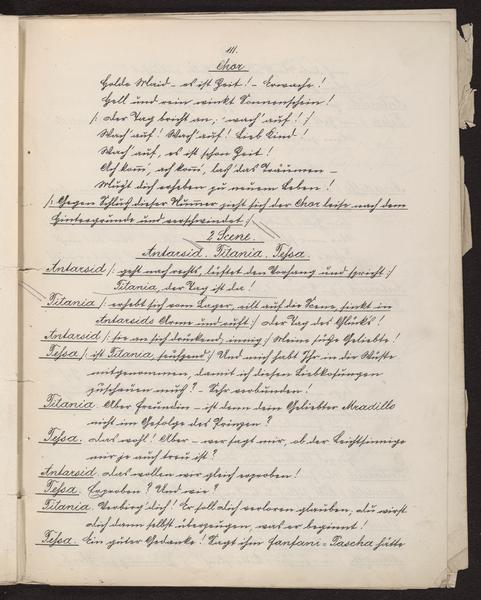 111.
Chor
Holde Maid – es ist Zeit! – Erwache!
Hell und rein winkt Sonnenschein!
/: Der Tag bricht an; wach' auf! :/
Wach' auf! Wach' auf! Lieb Kind!
Wach' auf, es ist schon Zeit!
Ach kom̄', ach kom̄', laß das Träumen –
Mußt dich erheben zu neuem Leben!
/: Gegen Schluß dieser Num̄er zieht sich der Chor leise nach dem
Hintergrunde und verschwindet :/
2 Scene.
Antarsid. Titania. Tessa.
Antarsid /: geht nach rechts, lüftet den Vorhang und spricht :/
Titania, der Tag ist da!
Titania /: erhebt sich vom Lager, eilt auf die Scene, sinkt in
Antarsids Arme und ruft :/ Der Tag des Glück's!
Antarsid /: sie an sich drückend, innig :/ Meine süße Geliebte!
Tessa /: ist Titania, seufzend :/ Und mich habt Ihr in die Wüste
mitgenommen, damit ich diesen Liebkosungen
zuschauen muß? – Sehr verbunden!
Titania Aber Freundin – ist denn dein Geliebter Mradillo
nicht im Gefolge des Prinzen?
Tessa. Das wohl! Aber – wer sagt mir, ob der Leichtsinnige
mir ja auch treu ist?
Antarsid Das wollen wir gleich erproben!
Tessa. Erproben? Und wie?
Titania. Verbirg' dich! Er soll dich verloren glauben, du wirst
dich dann selbst überzeugen, was er beginnt!
Tessa. Ein guter Gedanke! Sagt ihm Fanfani-Pascha hätte